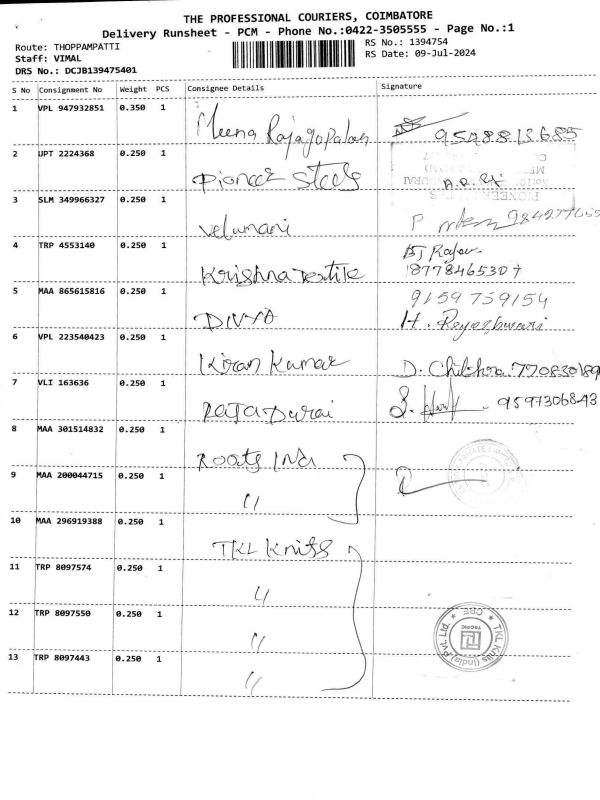 THE PROFESSIONAL COURIERS, COIMBATORE
Delivery Runsheet - PCM - Phone No.:0422-3505555 - Page No.:1
Route: THOPPAMPATTI
RS No.: 1394754
Staff: VIMAL
RS Date: 09-Jul-2024
DRS No.: DCJB139475401
S No Consignment No Weight PCS Consignee Details Signature
1 VPL 947932851 0.350 1 Meena Rajagopalan 9548813685
2 UPT 2224368 0.250 1 Pioneer Steels
3 SLM 349966327 0.250 1 Velumani
4 TRP 4553140 0.250 1 Krishna Textile
5 MAA 865615816 0.250 1 DIVYA 9159759154
6 VPL 223540423 0.250 1 Kiran Kumar D. Chithra
7 VLI 163636 0.250 1 RAJA Durai 9597306843
8 MAA 301514832 0.250 1 Roots Ind
9 MAA 200044715 0.250 1 "
10 MAA 296919388 0.250 1 TKL Knits
11 TRP 8097574 0.250 1 "
12 TRP 8097550 0.250 1 "
TKL Knits (India) Pvt. Ltd. * CBE *
TROPIC
13 TRP 8097443 0.250 1 "